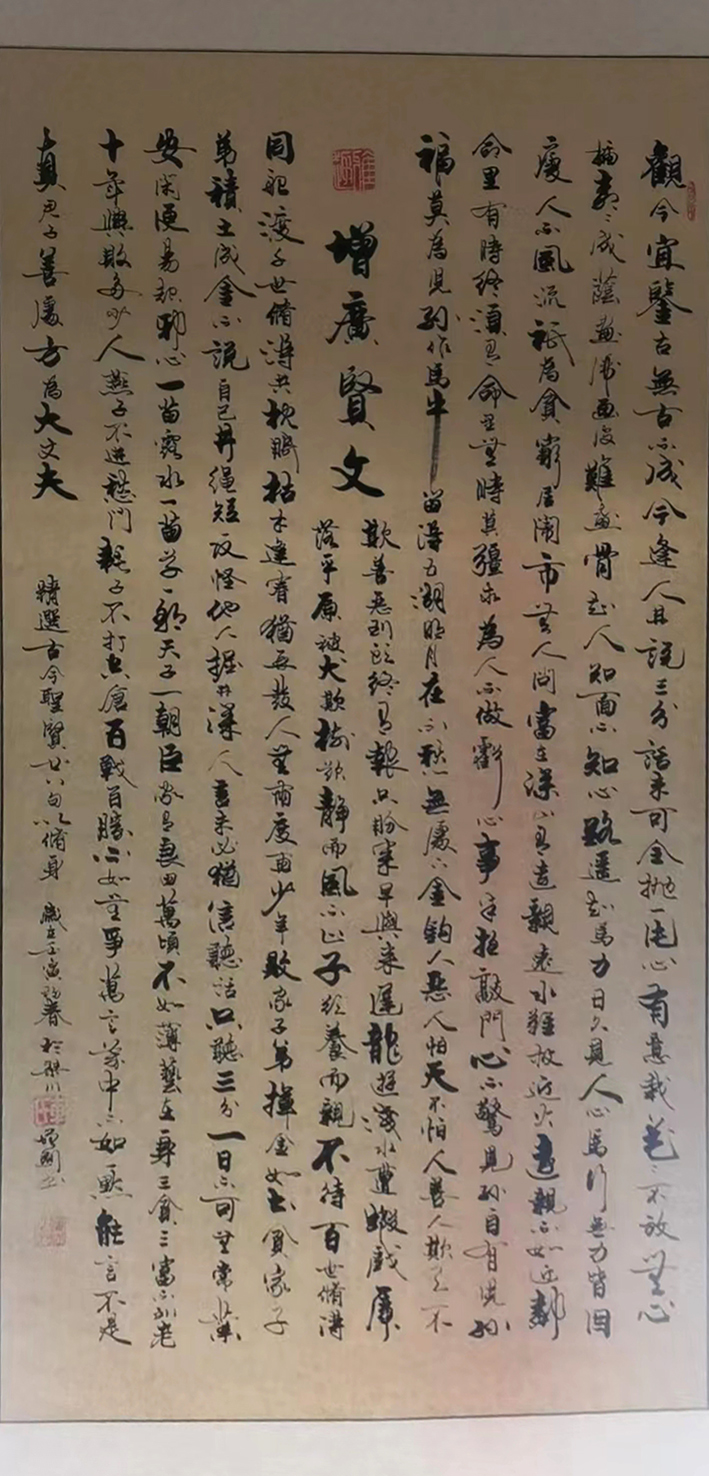 觀今宜鑒古無古不成今逢人且說三分話未可全抛一片心有意栽花花不放無心
插柳柳成蔭畫虎畫皮難畫骨知人知面不知心路遥知馬力日久見人心馬行無力皆因
瘦人不風流祇為貧窮居鬧市無人問富在深山有遠親遠水難救近火遠親不如近鄰
命里有時終須有命里無時莫強求為人不做虧心事半夜敲門心不驚兒孫自有兒孫
福莫為兒孫作馬牛留得五湖明月在不愁無處下金鈎人惡人怕天不怕人善人欺天不
增廣賢文
欺善惡到頭終有報只盼來早與來遲龍遊淺水遭蝦戲虎
落平原被犬欺樹欲靜而風不止子欲養而親不待百世脩得
同船渡千世脩得共枕眠枯木逢春猶再發人無兩度再少年敗家子弟揮金如土貧家子
弟積土成金不說自己井繩短反怪他人掘井深人言未必猶信聽話只聽三分一日不可無常業
安閑便易起邪心一苗露水一苗草一朝天子一朝臣家有良田萬頃不如薄藝在身三貧三富不到老
十年興敗多少人燕子不進愁門耗子不打空倉百戰百勝不如無爭萬言萬中不如一默能言不是
真君子善處方為大丈夫
精選古今聖賢廿八句以脩身 歲在壬寅初春 於